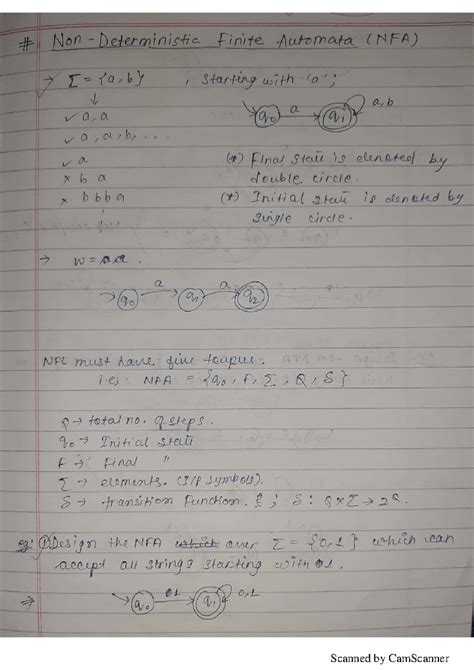 # Non-Deterministic Finite Automata (NFA)
→ Σ = {a,b} , starting with 'a';
↓
✓ a, a
✓ a, a, b, ...
✓ a
× b a
× b b b a
q0 a q1 a,b
(*) Final state is denoted by
double circle.
(*) Initial state is denoted by
single circle.
→ w = a a .
q0 a q1 a q2
must have five
i.e, NFA = {q0, F, Σ, Q, δ}
Q → total no. of steps.
q0 → Initial state
F → Final "
Σ → elements. (I/P symbols).
δ → transition function. ; δ: Q×Σ → 2Q.
eg: Design the NFA which over Σ = {0,1} which can
accept all strings starting with 01.
⇒ q0 01 q1 0,1
Scanned by CamScanner